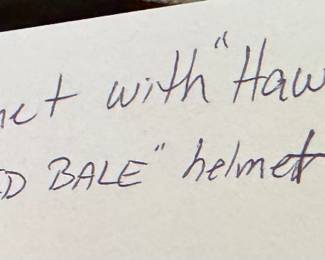 net with "Haw
D BALE" helmet